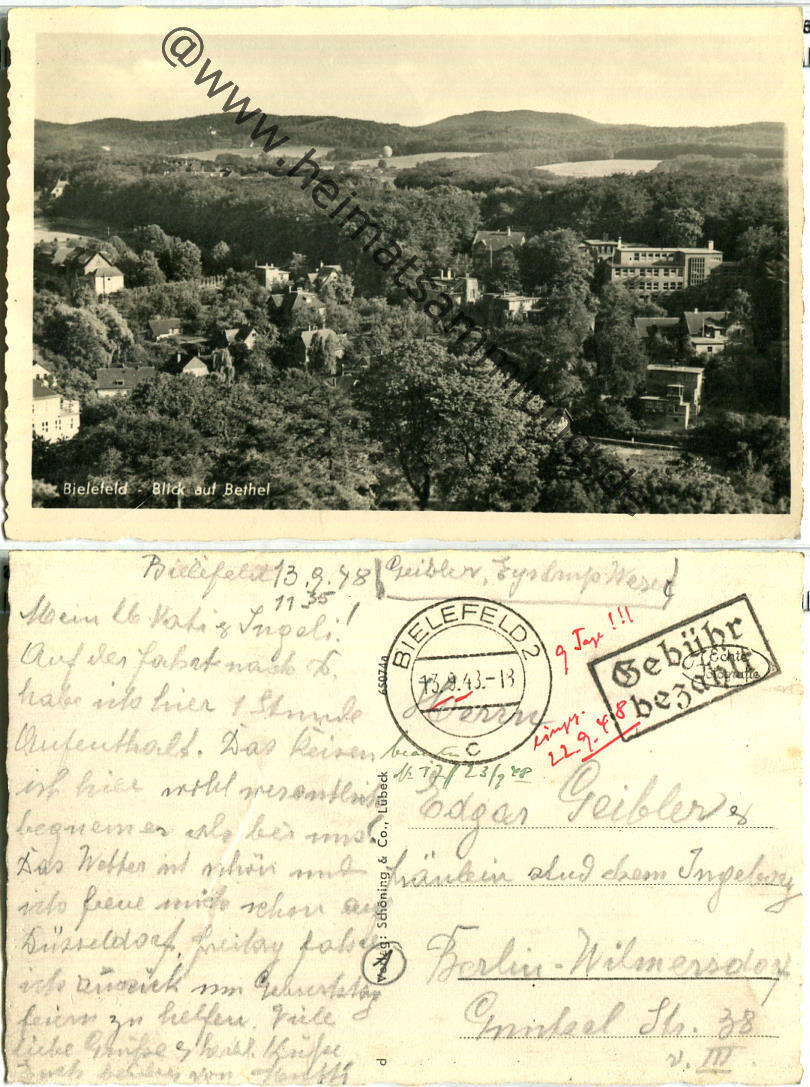 @www.heimatsammlung.de
Bielefeld - Blick auf Bethel
Bielefeld 13.9.48
11 35
Geibler, Eystrup Weser
Mein lb Vati & Ingeli!
Auf der Fahrt nach D.
habe ich hier 1 Stunde
Aufenthalt. Das Reisen
ist hier wohl wesentlich
bequemer als bei uns!
Das Wetter ist schön und
ich freue mich schon auf
Düsseldorf. Freitag fahre
ich zurück um Geburtstag
feiern zu helfen. Viele
liebe Grüße & herzl. Küsse
Euch beiden von
65074a
Verlag: Schöning & Co., Lübeck
d
BIELEFELD 2
13.9.48.-18
c
Gebühr
bezahlt
Echte
9 Tage !!!
eingg.
22.9.48
23/9 48
Herrn
Edgar Geibler &
Fräulein stud chem Ingeborg
Berlin-Wilmersdorf
Güntzel Str. 38
v. III